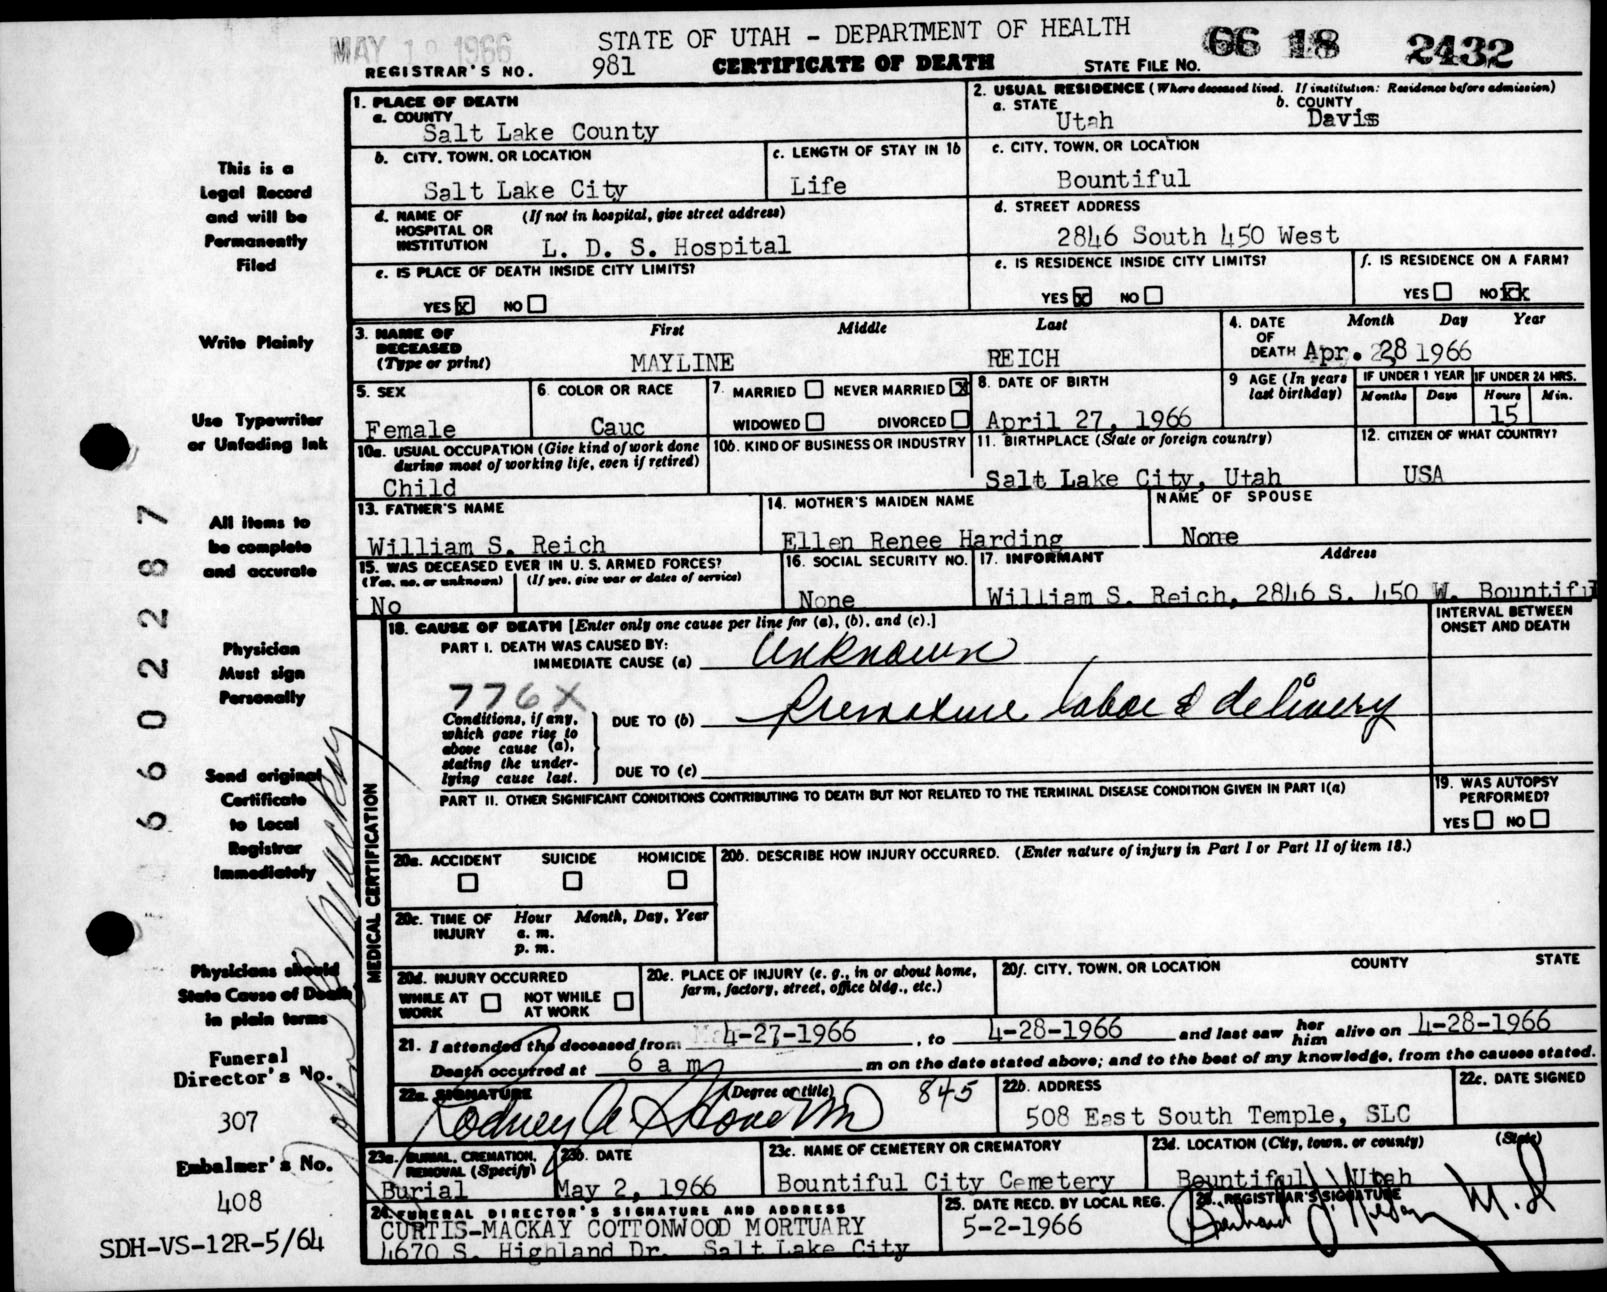 MAY 1966
STATE OF UTAH - DEPARTMENT OF HEALTH
REGISTRAR'S NO. 981 CERTIFICATE OF DEATH STATE FILE NO. 66 18 2432
This is a Legal Record and will be Permanently Filed
Write Plainly
Use Typewriter or Unfading Ink
All items to be complete and accurate
Physician Must sign Personally
Send original Certificate to Local Registrar Immediately
Physicians should State Cause of Death in plain terms
Funeral Director's No.
307
Embalmer's No.
408
SDH-VS-12R-5/64
66022287
1. PLACE OF DEATH
a. COUNTY
Salt Lake County
2. USUAL RESIDENCE (Where deceased lived. If institution: Residence before admission)
a. STATE
Utah
b. COUNTY
Davis
b. CITY, TOWN, OR LOCATION
Salt Lake City
c. LENGTH OF STAY IN 1b
Life
c. CITY, TOWN, OR LOCATION
Bountiful
d. NAME OF HOSPITAL OR INSTITUTION (If not in hospital, give street address)
L. D. S. Hospital
d. STREET ADDRESS
2846 South 450 West
e. IS PLACE OF DEATH INSIDE CITY LIMITS?
YES X NO
e. IS RESIDENCE INSIDE CITY LIMITS?
YES X NO
f. IS RESIDENCE ON A FARM?
YES NO XX
3. NAME OF DECEASED (Type or print)
First Middle Last
MAYLINE REICH
4. DATE OF DEATH
Month Day Year
Apr. 28 1966
5. SEX
Female
6. COLOR OR RACE
Cauc
7. MARRIED NEVER MARRIED X
WIDOWED DIVORCED
8. DATE OF BIRTH
April 27, 1966
9 AGE (In years last birthday)
IF UNDER 1 YEAR
Months Days
IF UNDER 24 HRS.
Hours Min.
15
10a. USUAL OCCUPATION (Give kind of work done during most of working life, even if retired)
Child
10b. KIND OF BUSINESS OR INDUSTRY
11. BIRTHPLACE (State or foreign country)
Salt Lake City, Utah
12. CITIZEN OF WHAT COUNTRY?
USA
13. FATHER'S NAME
William S. Reich
14. MOTHER'S MAIDEN NAME
Ellen Renee Harding
NAME OF SPOUSE
None
15. WAS DECEASED EVER IN U. S. ARMED FORCES?
(Yes, no, or unknown) (If yes, give war or dates of service)
No
16. SOCIAL SECURITY NO.
None
17. INFORMANT Address
William S. Reich, 2846 S. 450 W. Bountiful
MEDICAL CERTIFICATION
18. CAUSE OF DEATH [Enter only one cause per line for (a), (b), and (c).]
INTERVAL BETWEEN ONSET AND DEATH
PART I. DEATH WAS CAUSED BY:
IMMEDIATE CAUSE (a) Unknown
776X
Conditions, if any, which gave rise to above cause (a), stating the underlying cause last.
DUE TO (b) Premature labor & delivery
DUE TO (c)
PART II. OTHER SIGNIFICANT CONDITIONS CONTRIBUTING TO DEATH BUT NOT RELATED TO THE TERMINAL DISEASE CONDITION GIVEN IN PART I(a)
19. WAS AUTOPSY PERFORMED?
YES NO
20a. ACCIDENT SUICIDE HOMICIDE
20b. DESCRIBE HOW INJURY OCCURRED. (Enter nature of injury in Part I or Part II of item 18.)
20c. TIME OF INJURY Hour Month, Day, Year
a. m.
p. m.
20d. INJURY OCCURRED
WHILE AT WORK NOT WHILE AT WORK
20e. PLACE OF INJURY (e. g., in or about home, farm, factory, street, office bldg., etc.)
20f. CITY, TOWN, OR LOCATION COUNTY STATE
21. I attended the deceased from 4-27-1966, to 4-28-1966 and last saw her him alive on 4-28-1966
Death occurred at 6 a m m on the date stated above; and to the best of my knowledge, from the causes stated.
22a. SIGNATURE (Degree or title) 845
Rodney A
22b. ADDRESS
508 East South Temple, SLC
22c. DATE SIGNED
23a. BURIAL, CREMATION, REMOVAL (Specify)
Burial
23b. DATE
May 2, 1966
23c. NAME OF CEMETERY OR CREMATORY
Bountiful City Cemetery
23d. LOCATION (City, town, or county) (State)
Bountiful, Utah
24. FUNERAL DIRECTOR'S SIGNATURE AND ADDRESS
CURTIS-MACKAY COTTONWOOD MORTUARY
4670 S. Highland Dr. Salt Lake City
25. DATE RECD. BY LOCAL REG.
5-2-1966
26. REGISTRAR'S SIGNATURE
M.D